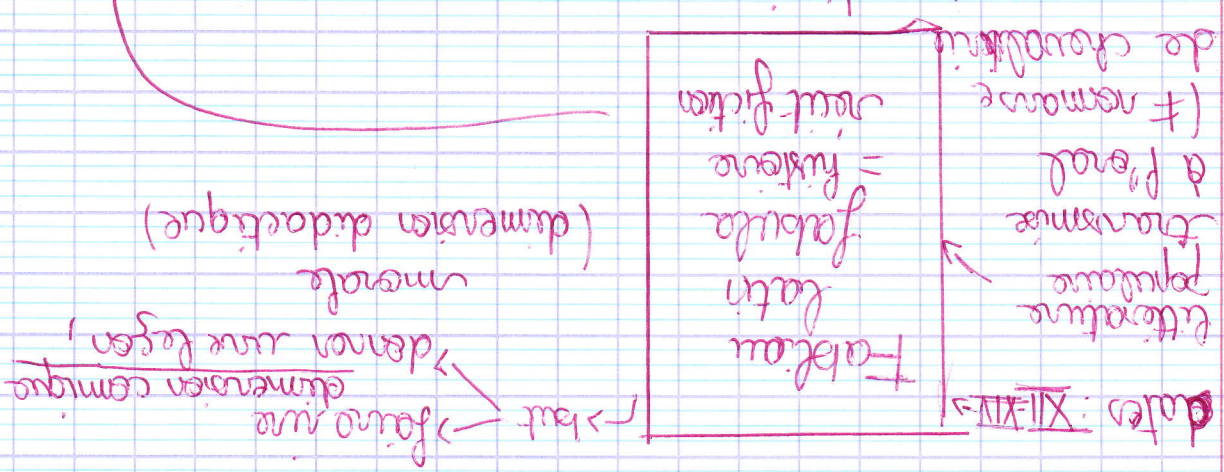 dates : XII-XIV
littérature
populaire
transmise
à l'oral
(≠ romans
de chevalerie
Fabliau
latin
fabula
= histoire
récit fiction
but
> faire rire
dimension comique
> donner une leçon,
morale
(dimension didactique)